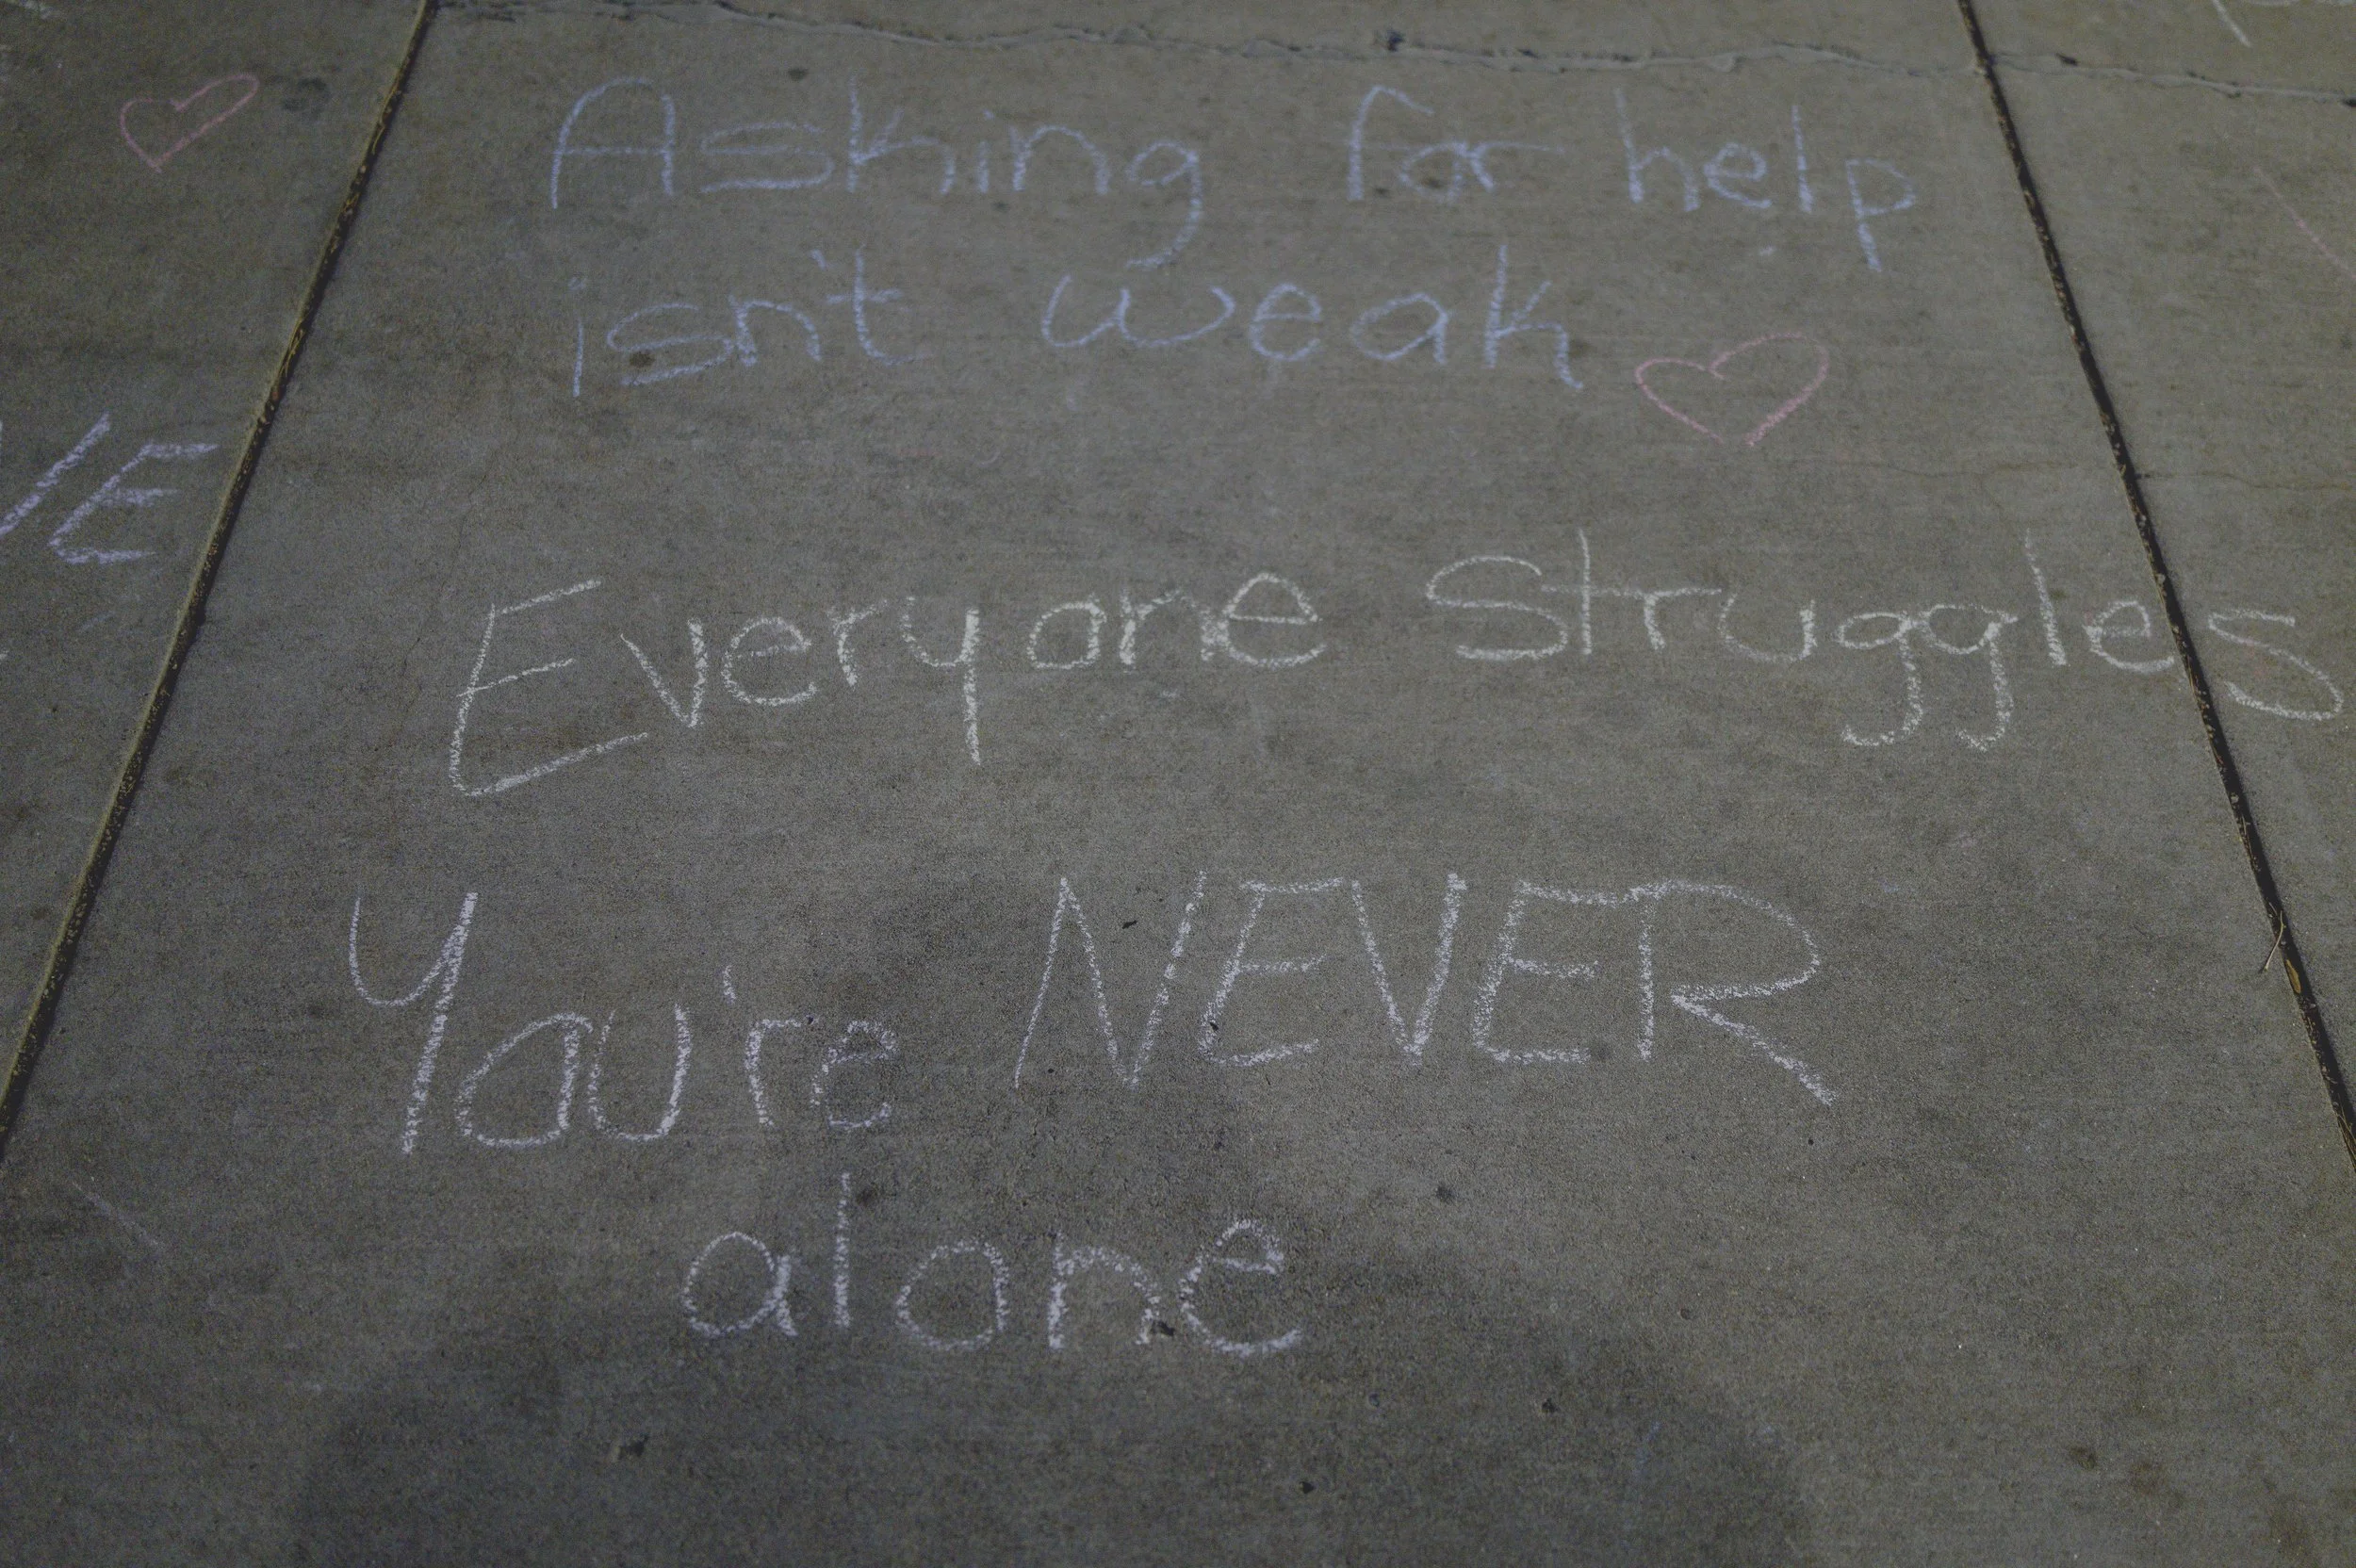 Asking for help
isn't weak
VE
Everyone struggles
You're NEVER
alone